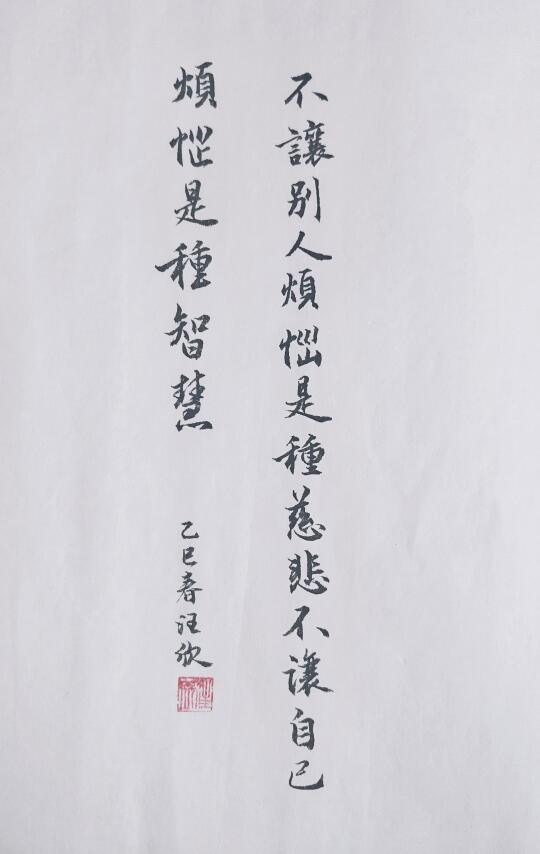 不讓別人煩惱是種慈悲不讓自己
煩惱是種智慧
乙巳春汪欣